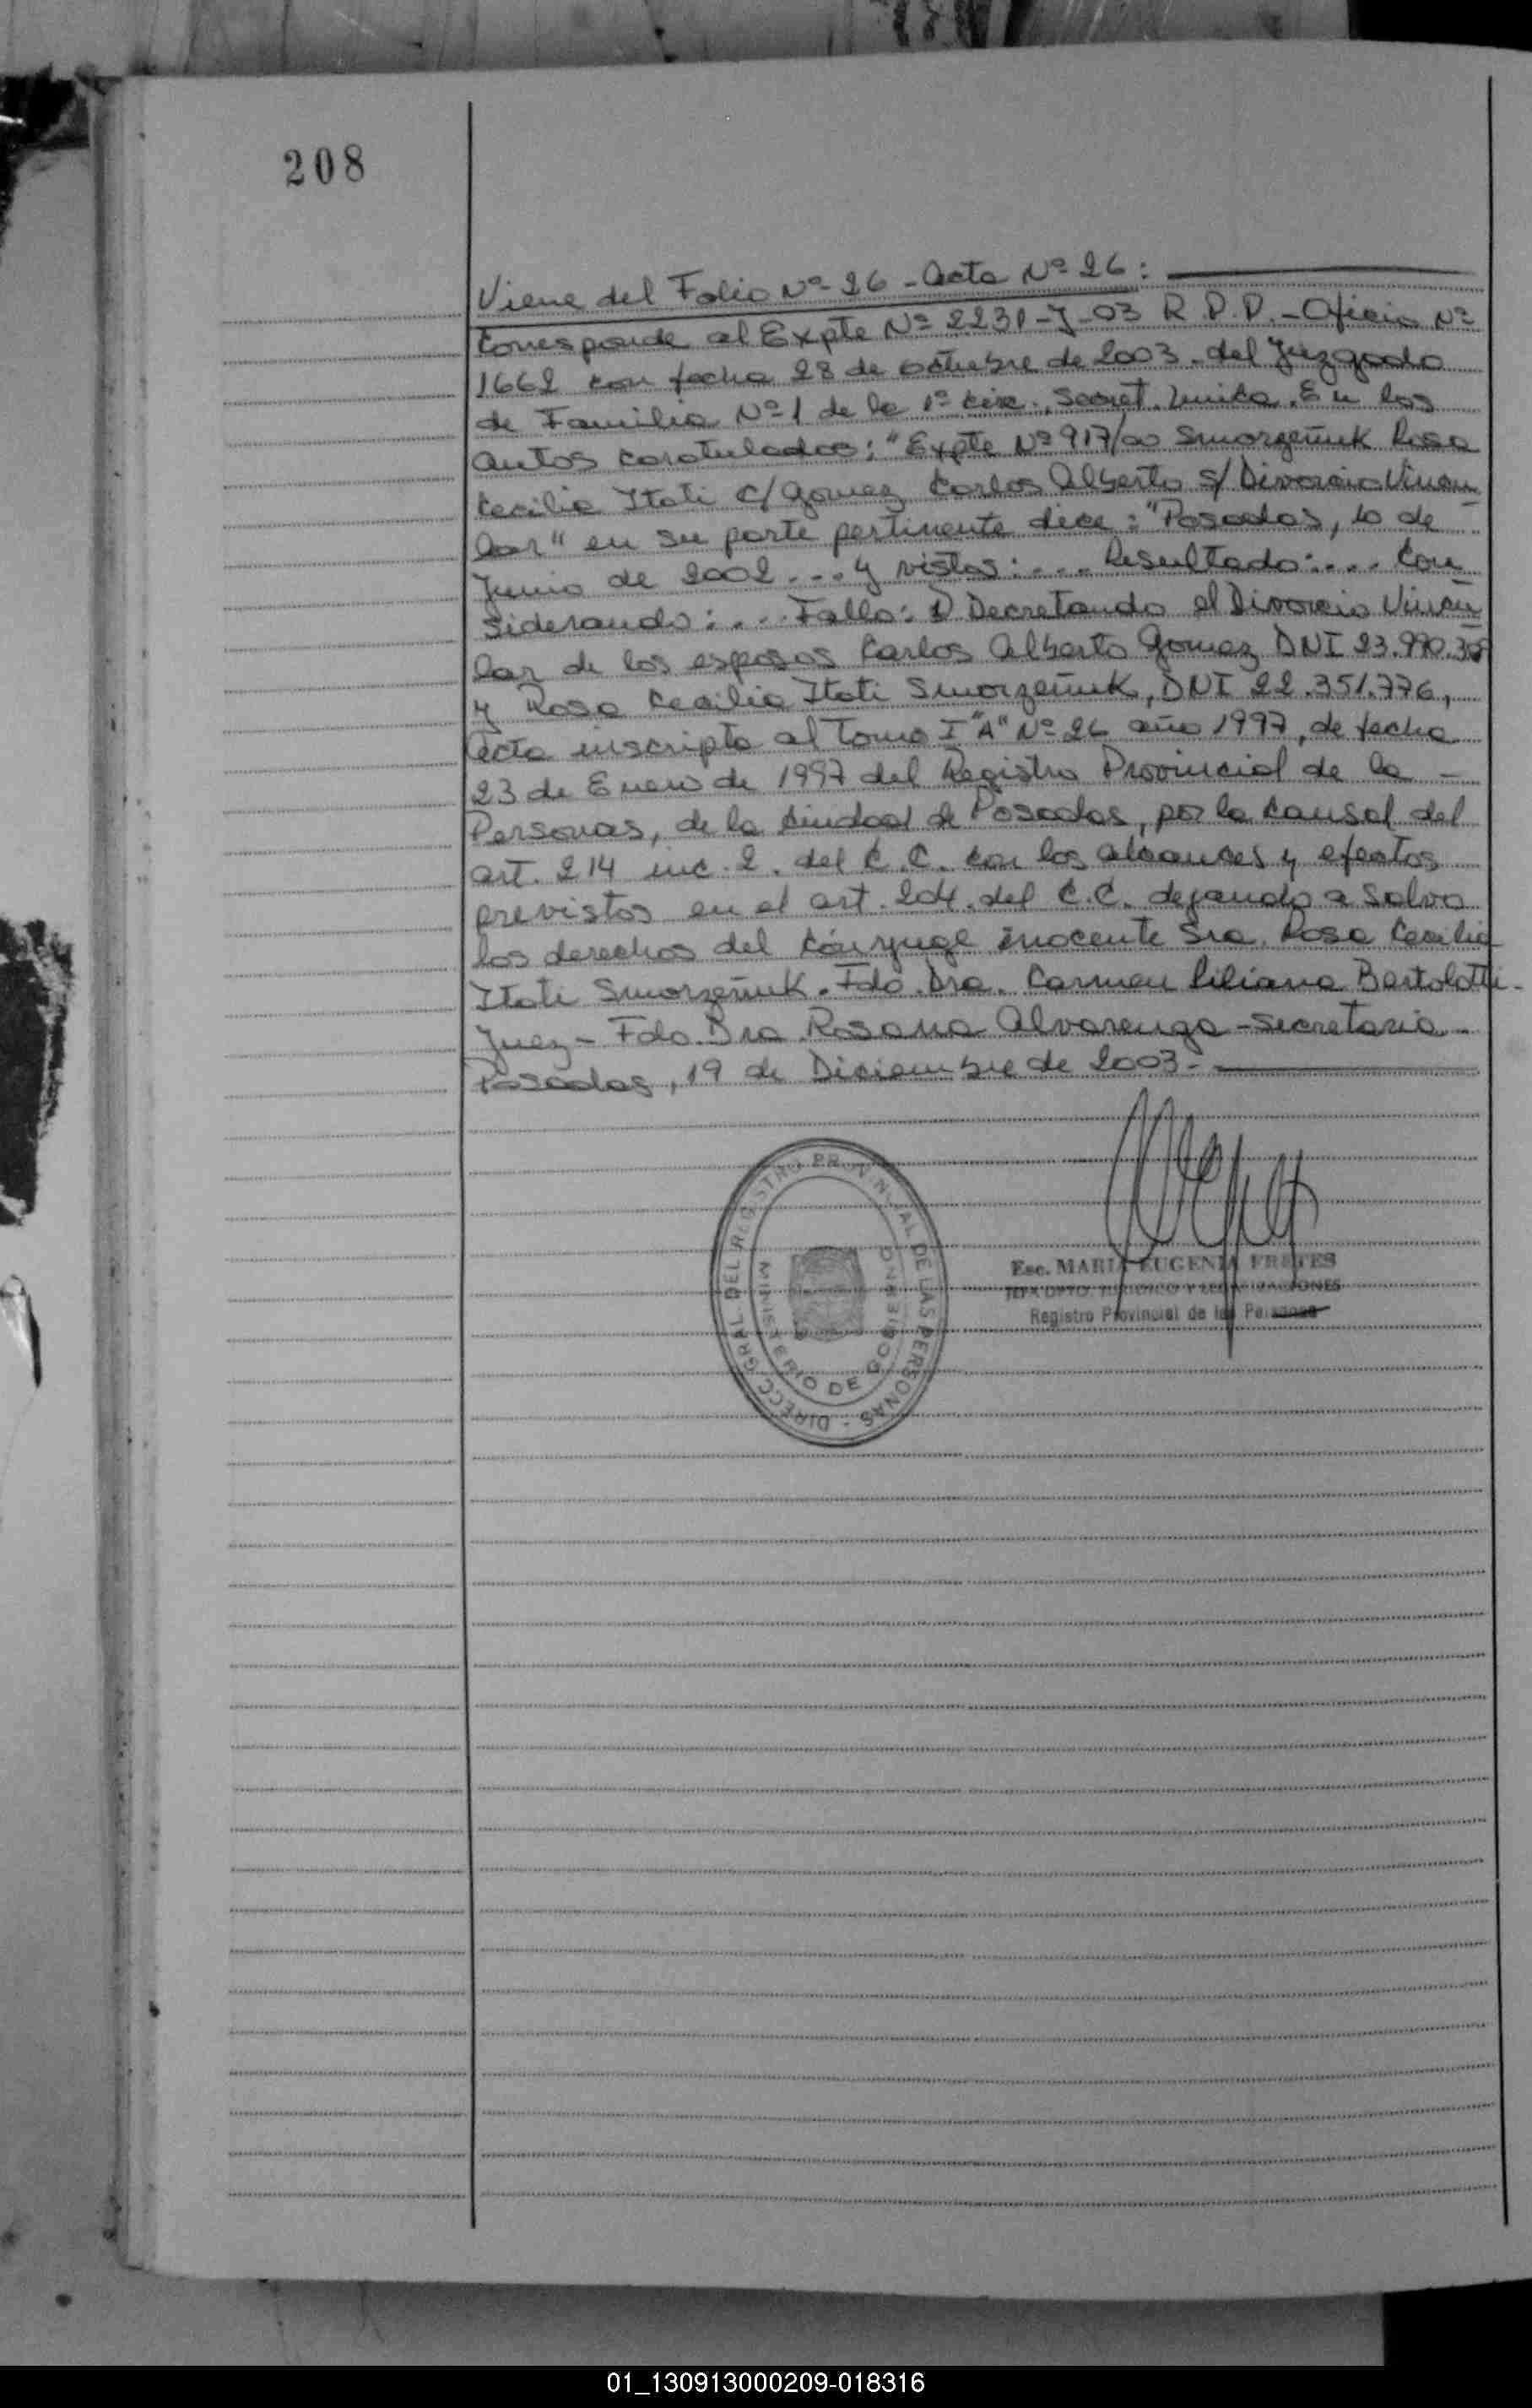 208
Viene del Folio Nº 26 - Acta Nº 26:
Corresponde al Expte Nº 2231-J-03 R.P.P. - Oficio Nº
1662 con fecha 28 de octubre de 2003 - del Juzgado
de Familia Nº 1 de la 1ª circ., Secret. Unica. En los
autos caratulados: "Expte Nº 917/00 Smorzeñuk Rosa
Cecilia Itati c/ Gomez Carlos Alberto s/ Divorcio Vincu
lar" en su parte pertinente dice: "Posadas, 10 de
Junio de 2002 ... y vistos: .... Resultado: .... Con
siderando: ... Fallo: 1) Decretando el Divorcio Vincu
lar de los esposos Carlos Alberto Gomez DNI 23.990.
y Rosa Cecilia Itati Smorzeñuk, DNI 22.351.776,
Acta inscripta al Tomo I "A" Nº 26 año 1997, de fecha
23 de Enero de 1997 del Registro Provincial de la -
Personas, de la Ciudad de Posadas, por la causal del
art. 214 inc. 2. del C.C. con los alcances y efectos
previstos en el art. 204. del C.C. dejando a salvo
los derechos del cónyuge inocente Sra. Rosa Cecilia
Itati Smorzeñuk. Fdo. Dra. Carmen Liliana Bertolotti -
Juez - Fdo. Dra. Rosana Alvarenga - secretaria -
Posadas, 19 de Diciembre de 2003 -
DIRECC. GRAL. DEL REGISTRO PROVINCIAL DE LAS PERSONAS -
MINISTERIO DE GOBIERNO
Esc. MARIA EUGENIA FRETES
JEFA DPTO. JURIDICO Y LEGALIZACIONES
Registro Provincial de las Personas
01_130913000209-018316